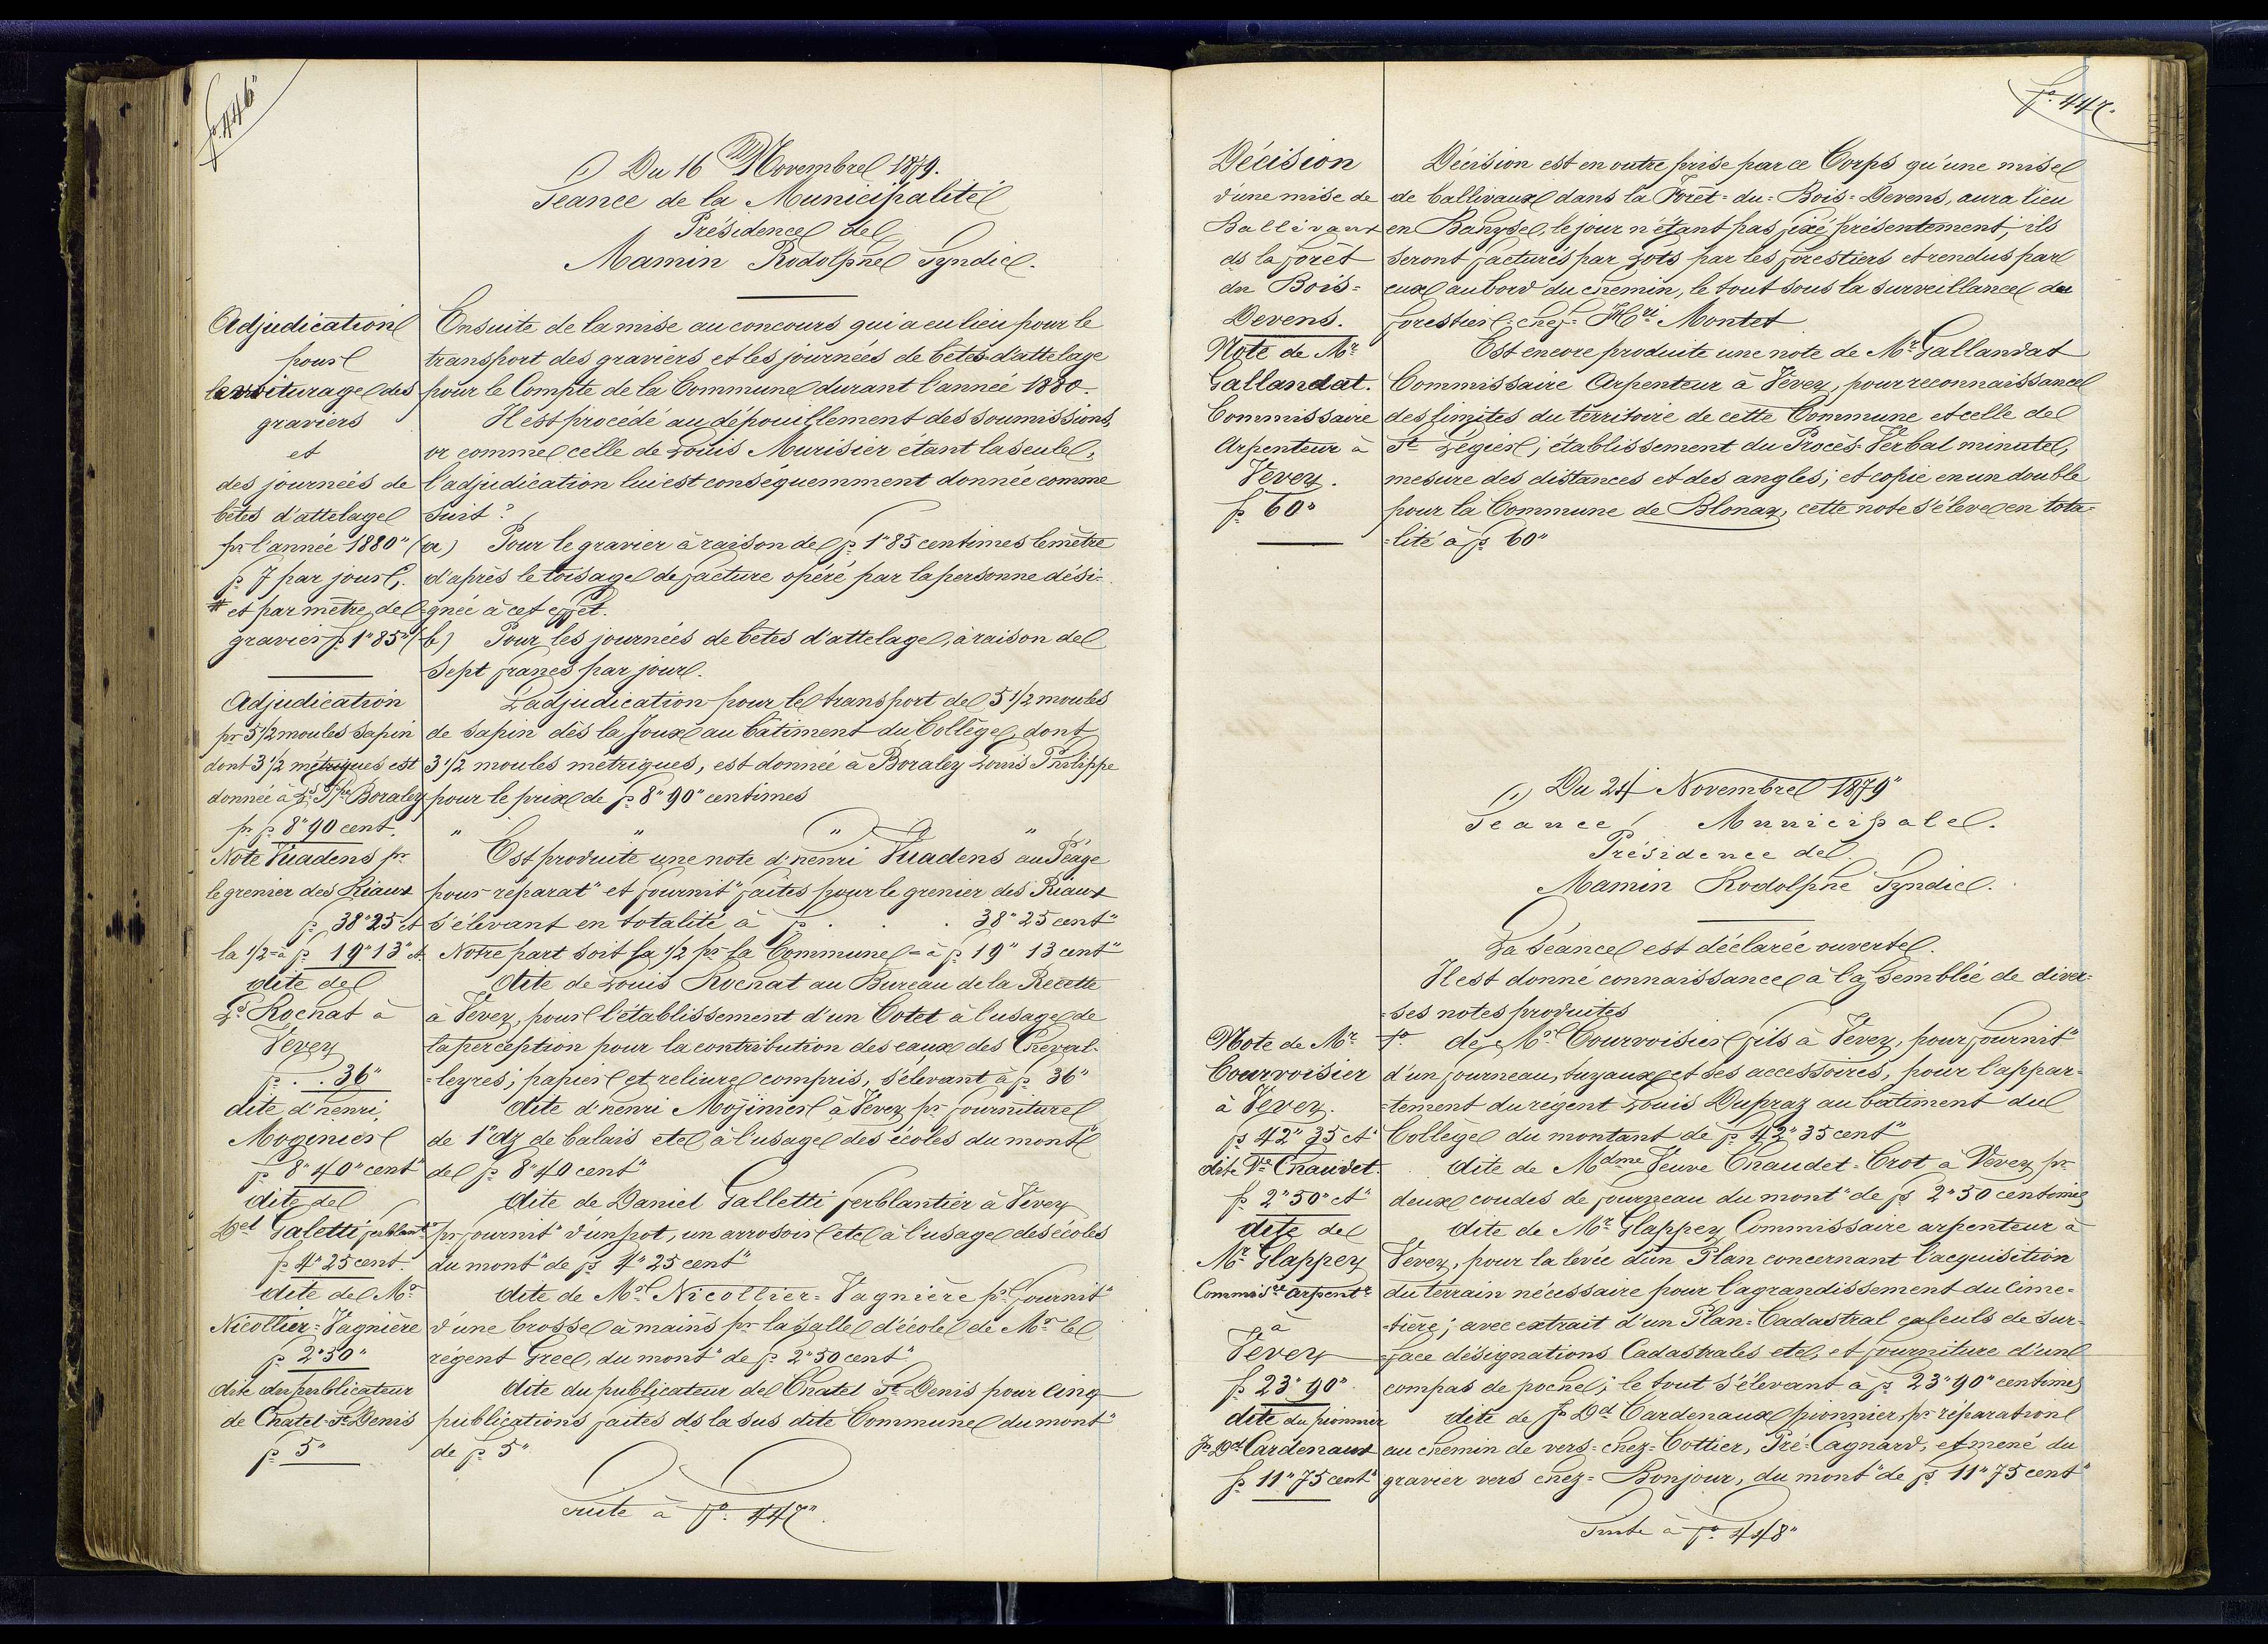 fo. 446"
Du 16 Novembre 1879.
Séance de la Municipalité
Présidence de
Mamin Rodolphe Syndic.
Adjudication
pour
le voiturage des
graviers
et
des journées de
bêtes d'attelage
pr l'année 1880"
fs 7 par jour,
et par mètre de
gravier fs 1"85"
Ensuite de la mise au concours qui a eu lieu pour le
transport des graviers et les journées de bêtes d'attelage
pour le Compte de la Commune durant l'année 1880.
Il est procédé au dépouillement des soumissions,
or comme celle de Louis Murisier étant la seule,
l'adjudication lui est conséquemment donnée comme
suit:
(a) Pour le gravier à raison de fs 1"85 centimes le mètre
d'après le toisage de facture opéré par la personne dési=
=gnée à cet effet.
(b) Pour les journées de bêtes d'attelage, à raison de
Sept francs par jour.
Adjudication
pr 5 1/2 moules sapin
dont 3 1/2 métriques est
donnée à Ls Ppe Boraley
pr fs 8"90 cent.
L'adjudication pour le transport de 5 1/2 moules
de sapin dès la Joux au bâtiment du Collège, dont
3 1/2 moules métriques, est donnée à Boraley Louis Philippe
pour le prix de fs 8"90" centimes
" " " "
Note Vuadens pr
le grenier des Riaux
fs 38"25 ct
la 1/2 = à fs 19"13" ct
Est produite une note d'henri Vuadens au Péage
pour réparat" et fournit" faites pour le grenier des Riaux
s'élevant en totalité à fs . . . 38"25 cent"
Notre part soit la 1/2 pr la Commune = à fs 19" 13 cent"
dite de
Ls Rochat à
Vevey
fs . . 36"
dite de Louis Rochat au Bureau de la Recette
à Vevey, pour l'établissement d'un Cotet à l'usage de
la perception pour la contribution des eaux des Cheval-
=leyres; papier et reliure compris, s'élevant à fs 36"
dite d'henri
Moginier
fs 8"40" cent"
dite d'henri Mojinier à Vevey pr fourniture
de 1" dz de balais etc, à l'usage des écoles du mont"
de fs 8"40 cent"
dite de
Del Galetti ferblant"
fs 4"25 cent.
dite de Daniel Galletti ferblantier à Vevey
pr fournit" d'un pot, un arrosoir etc à l'usage des écoles
du mont" de fs 4"25 cent"
dite de Mr
Nicollier=Vagnière
fs 2"50"
dite de Mr Nicollier=Vagnière pr fournit"
d'une brosse à mains pr la salle d'école de Mr le
régent Grec, du mont" de fs 2"50 cent"
dite du publicateur
de Chatel=St Denis
fs 5"
dite du publicateur de Chatel St Denis pour cinq
publications faites ds la sus dite Commune du mont"
de fs 5"
suite à fo. 447"
fo. 447.
Décision
d'une mise de
Ballivaux
ds la forêt
du Bois=
Devens.
Décision est en outre prise par ce Corps qu'une mise
de ballivaux dans la Forêt=du=Bois=Devens, aura lieu
en Banyse, le jour n'étant pas fixé présentement; ils
seront facturés par Lots par les forestiers et rendus par
eux au bord du chemin, le tout sous la surveillance du
forestier chef= Hri Montet
Note de Mr
Gallandat.
Commissaire
Arpenteur à
Vevey.
fs 60"
Est encore produite une note de Mr Gallandat
Commissaire Arpenteur à Vevey, pour reconnaissance
des limites du territoire de cette Commune et celle de
St Légier; établissement du Procès=Verbal minute,
mesure des distances et des angles; et copie en un double
pour la Commune de Blonay, cette note s'élève en tota=
=lité à fs 60"
Du 24 Novembre 1879"
Séance Municipale.
Présidence de
Mamin Rodolphe Syndic.
La Séance est déclarée ouverte.
Il est donné connaissance à l'assemblée de diver=
=ses notes produites
Note de Mr
Courvoisier
à Vevey.
fs 42"35 ct"
1o de Mr Courvoisier fils à Vevey, pour fournit"
d'un fourneau, tuyaux et ses accessoires, pour l'appar=
=tement du régent Louis Dupraz au bâtiment du
Collège du montant de fs 42"35 cent"
dite Ve Chaudet.
fs 2"50" ct"
dite de Mdme Veuve Chaudet=Crot à Vevey pr
deux coudes de fourneau du mont" de fs 2"50 centimes
dite de
Mr Glappey
Commisre arpentr
à
Vevey
fs 23"90"
dite de Mr Glappey Commissaire arpenteur à
Vevey, pour la levée d'un Plan concernant l'acquisition
du terrain nécessaire pour l'agrandissement du cime=
=tière; avec extrait d'un Plan=Cadastral calculs de sur=
=face désignations Cadastrales etc, et fourniture d'un
compas de poche; le tout s'élevant à fs 23"90" centimes
dite du pionnier
Jn Dd Cardenaux
fs 11"75 cent"
dite de Jn Dd Cardenaux pionnier, pr réparation
au chemin de vers=chez=Cottier, Pré=Cagnard, et mené du
gravier vers chez=Bonjour, du mont" de fs 11"75 cent"
Suite à fo 448"